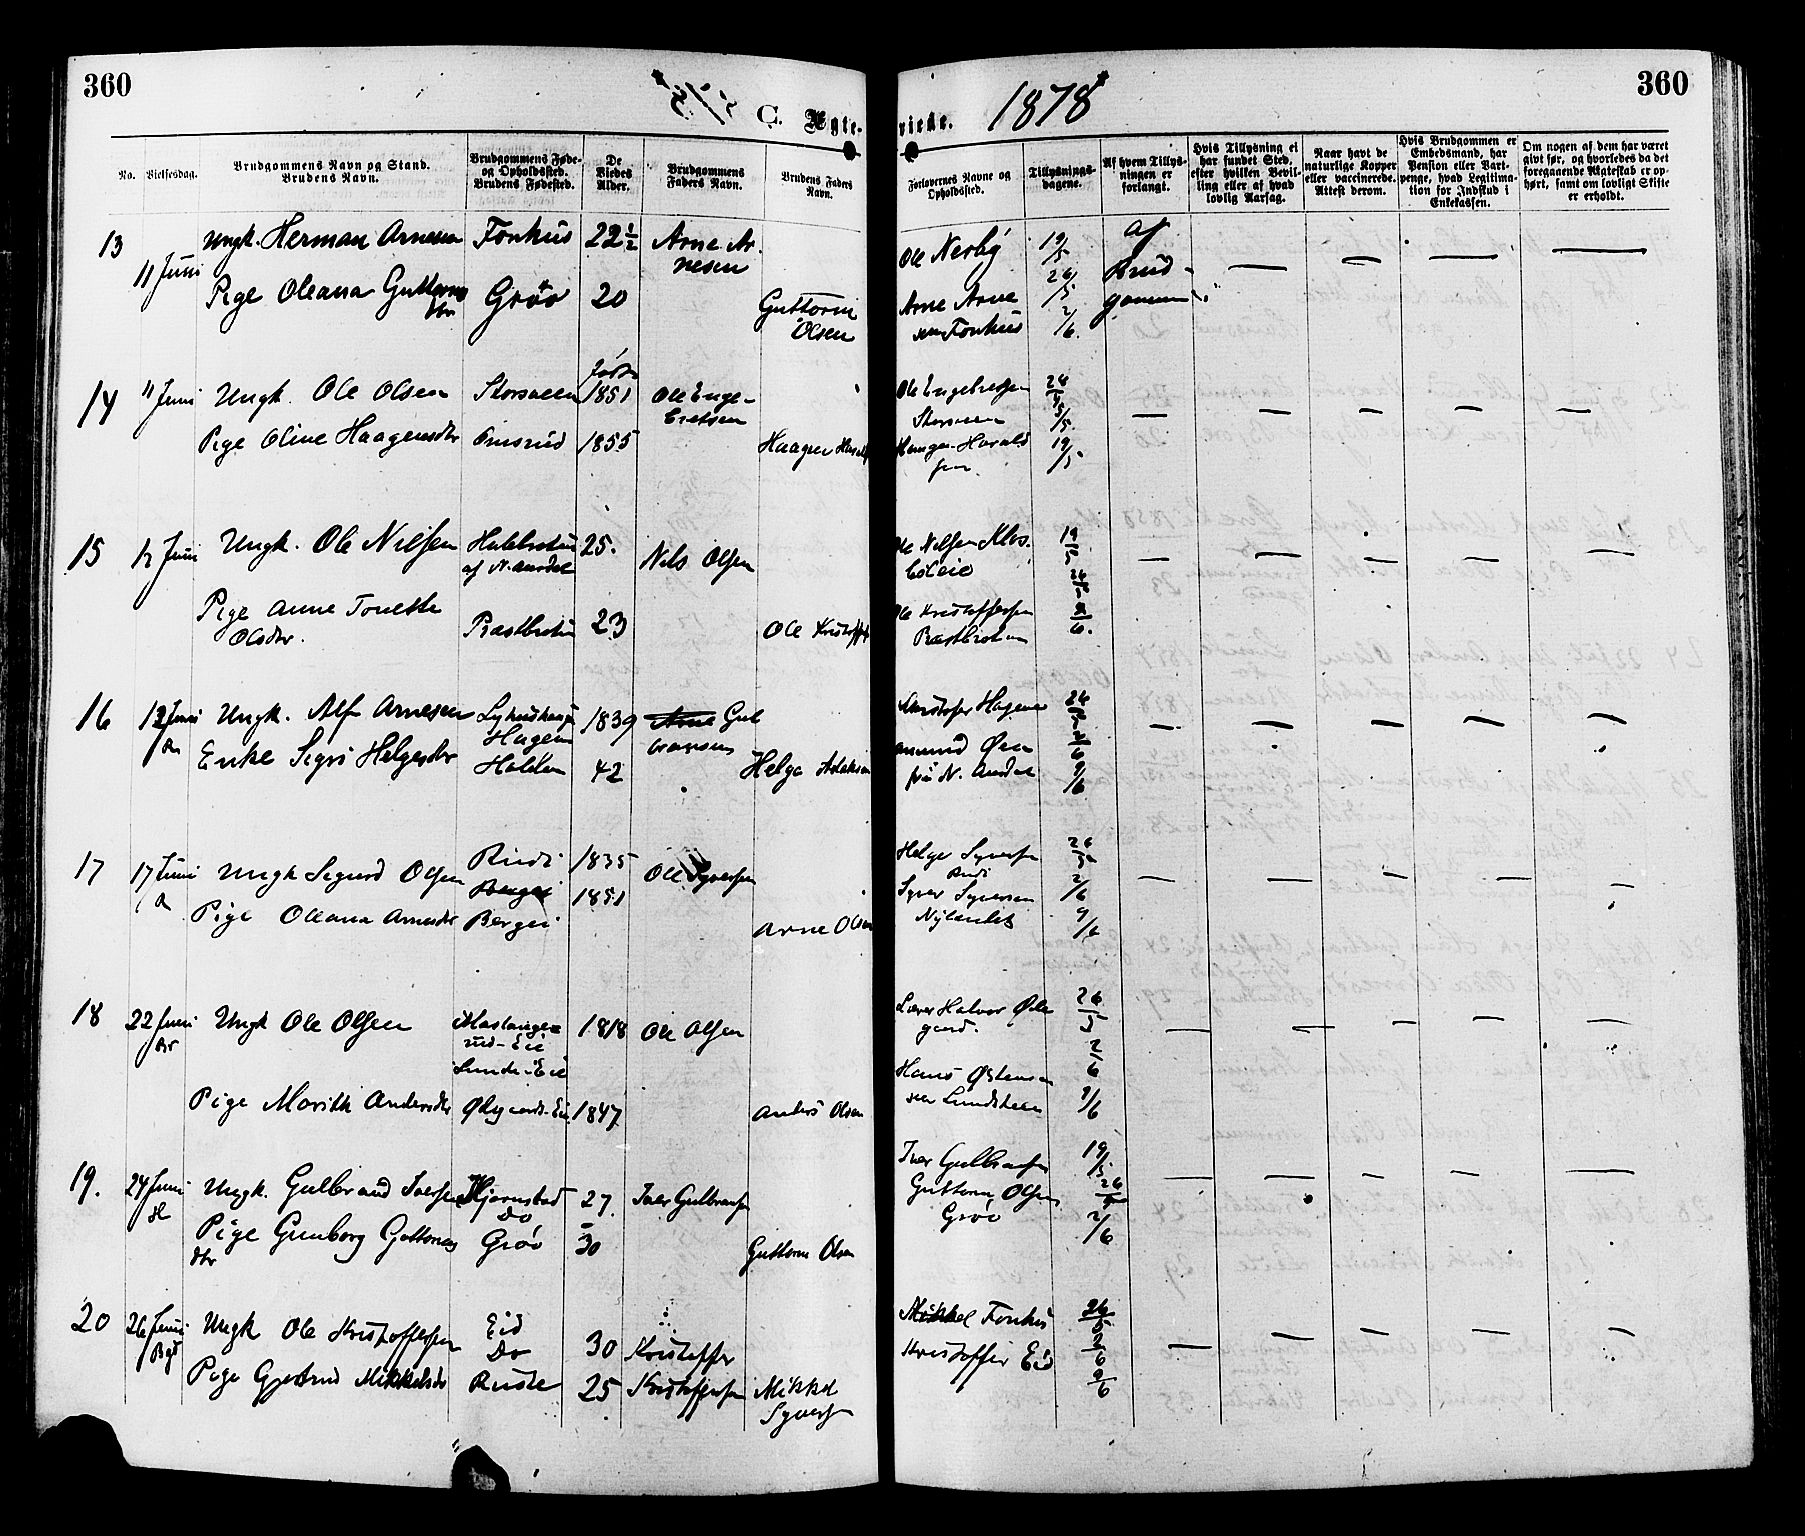 360
C. Ægte-
viede.
1878
360
No.
Vielsesdag.
Brudgommens Navn og Stand.
Brudens Navn.
Brudgommens Føde-
og Opholdssted.
Brudens Fødested.
De
Viedes
Alder.
Brudgommens
Faders Navn.
Brudens Faders
Navn.
Forlovernes Navne og
Opholdssted.
Tillysnings-
dagene.
Af hvem Tillys-
ningen er
forlangt.
Hvis Tillysning ei
har fundet Sted,
efter hvilken Bevil-
ling eller af hvad
lovlig Aarsag.
Naar havt de
naturlige Kopper
eller vaccinerede.
Attest derom.
Hvis Brudgommen er
Embedsmand, har
Pension eller Vart-
penge, hvad Legitima-
tion for Indskud i
Enkekassen.
Om nogen af dem har været
givt før, og hvorledes da det
foregaaende Ægteskab er op-
hørt, samt om lovligt Skifte
er erholdt.
13
11 Juni
Ungk. Herman Arnesen
Fonhus
22 1/2
Arne Ar
nesen
Ole Nerby
19/5
af
Pige Oleana Guttorms
dtr
Grøv
20
Guttorm
Olsen
Arne Arne
sen Fonhus
26/5
2/6
Brud-
gommen
14
11 Juni
Ungk. Ole Olsen
Storsveen
født
1851
Ole Enge-
bretsen
Ole Engebretsen
Storsveen
26/5
5/5
Pige Oline Haagensdtr
1855
Haagen
Haagen Harald
sen
19/5
15
12 Juni
Ungk. Ole Nilsen
af N. Aurdal
25.
Nils Olsen
Ole Nilsen
19/5
26/5
Pige Anne Tonette
Olsdtr.
Præstbraaten
23
Ole Kristoffer
Ole Kristoffersen
2/6.
16
12 Juni
Ungk. Alf Arnesen
Hagen
1839
Arne Gul
bransen
Kristofer Hagen
26/5
2/6
Enke Sigri Helgesdtr
42
Helge Aslaksen
fra N. Aurdal
9/6
17
17 Juni
Ungk Sigurd Olsen
Rudi
Bergei
1835
1851
Ole Syversen
Helge Syversen
Rudi
26/5
Pige Oleana Arnesdtr
Bergei
Arne Olsen
Syver Syversen
Nylandet
2/6
9/6
18
22 Juni
Ungk Ole Olsen
rud-Eie
Lunde-Eie
1818
Ole Olsen
Lærer Halvor Øde
gaard.
26/5
2/6
Pige Marith Andersdtr
Ødegaards-Eie
1847
Anders Olsen
Hans Østensen
9/6
19.
24 Juni
Ungk. Gulbrand Iversen
Hjørnstad
Do
27
Iver Gulbransen
Iver Gulbransen
19/5
Pige Gunborg Guttorms
dtr
Grøv
30
Guttorm Olsen
Guttorm Olsen
Grøv
26/5
2/6
20
26 Juni
Ungk Ole Kristoffersen
Eid
Do
30
Kristoffer
Kristoffersen
Mikkel Fonhus
26/5
2/6
Pige Gjertrud Mikkelsdtr
Ruste
25
Mikkel
Syversen
Kristoffer Eid
9/6